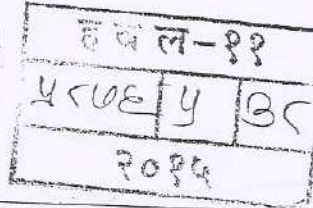 हवल-११
५८७६ ५ ३८
२०१५